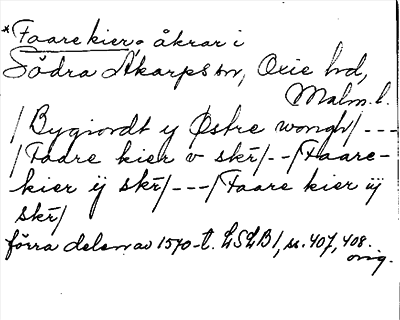 *Faare kier; åkrar i
Södra Åkarps sn, Oxie hd,
Malm. l.
/Bygiordt y Østre wongh/---
/Faare kier v skr̄/--/Faare-
kier ij skr̄/---/Faare kier iij
skr̄/
förra delen av 1570-t. LSLB 1, ss. 407, 408.
orig.